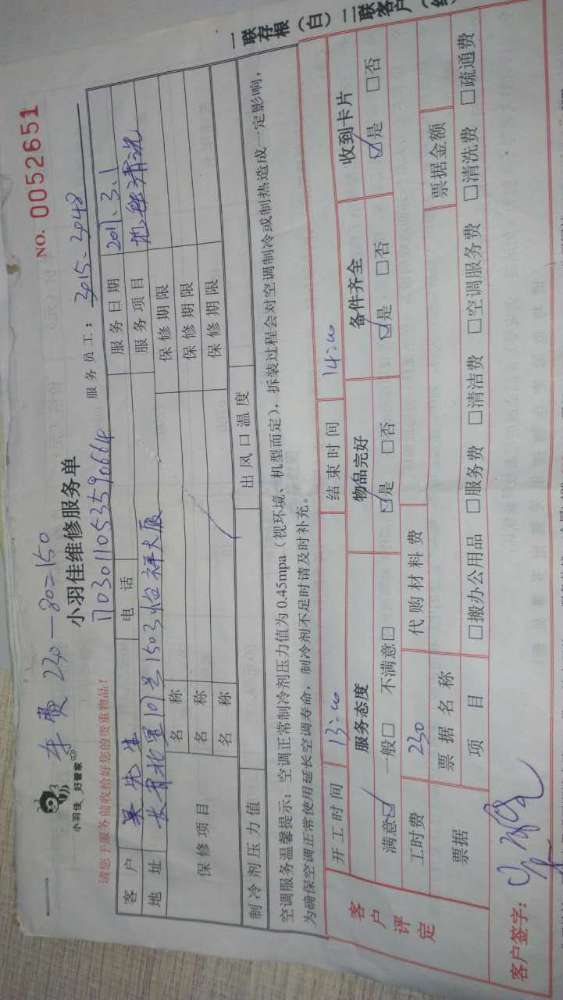 车费 230-80=150
小羽佳 好管家
小羽佳维修服务单
NO. 0052651
请您于服务前收拾好您的贵重物品!
1703011053590664
服务员工: 3015.3048
客户 吴先生 电话 服务日期 2017.3.1
地址 1503怡祥大厦 服务项目 地毯清洗
保修项目 名称 保修期限
名称 保修期限
名称 保修期限
制冷剂压力值 出风口温度
空调服务温馨提示: 空调正常制冷剂压力值为0.45mpa(视环境、机型而定), 拆装过程会对空调制冷或制热造成一定影响,
为确保空调正常使用延长空调寿命, 制冷剂不足时请及时补充。
客户评定
开工时间 13:00 结束时间 14:00
服务态度 物品完好 备件齐全 收到卡片
满意☑ 一般□ 不满意□ ☑是 □否 ☑是 □否 ☑是 □否
工时费 230 代购材料费
票据 票据名称 票据金额
项目 □搬办公用品 □服务费 □清洁费 □空调服务费 □清洗费 □疏通费
客户签字:
一联存根(白) 二联客户